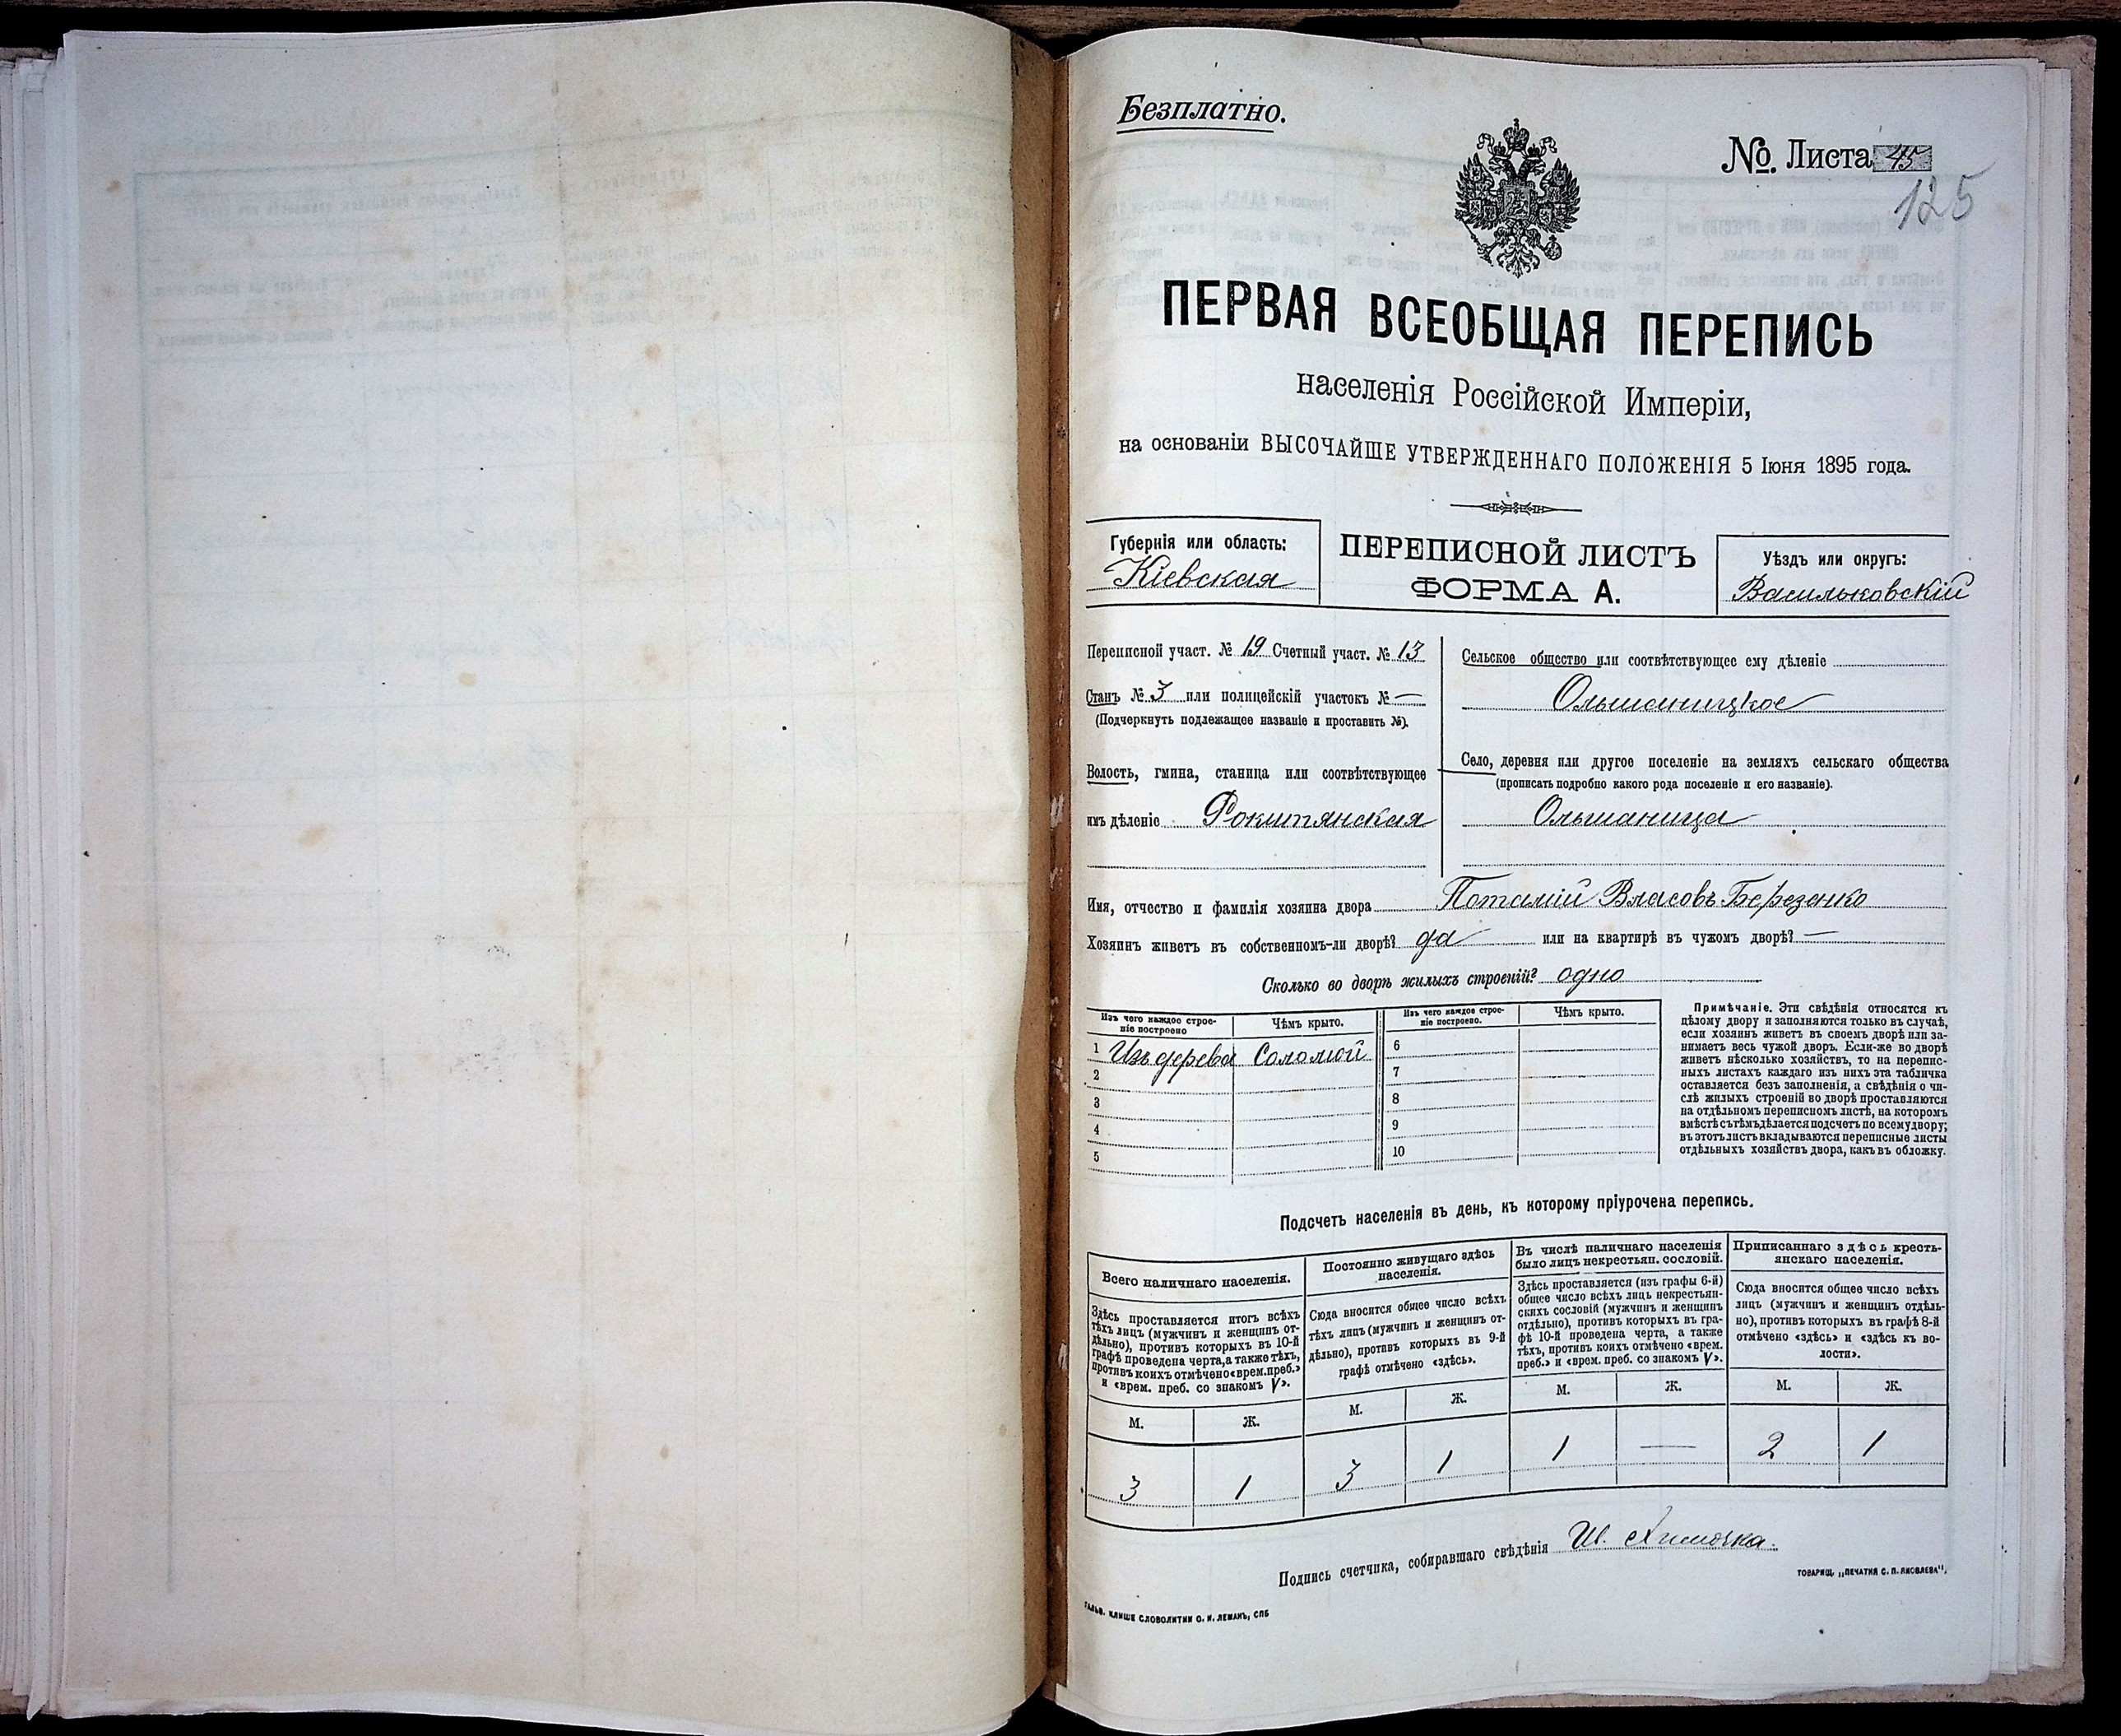 Безплатно.
№. Листа 45
125
ПЕРВАЯ ВСЕОБЩАЯ ПЕРЕПИСЬ
населенія Россійской Имперіи,
на основаніи ВЫСОЧАЙШЕ УТВЕРЖДЕННАГО ПОЛОЖЕНІЯ 5 Іюня 1895 года.
Губернія или область:
Кіевская
ПЕРЕПИСНОЙ ЛИСТЪ
ФОРМА А.
Уѣздъ или округъ:
Васильковскій
Переписной участ. № 19 Счетный участ. № 13
Станъ № 3 или полицейскій участокъ № —
(Подчеркнуть подлежащее названіе и проставить №).
Волость, гмина, станица или соотвѣтствующее
имъ дѣленіе Рокитянская
Сельское общество или соотвѣтствующее ему дѣленіе
Ольшаницкое
Село, деревня или другое поселеніе на земляхъ сельскаго общества
(прописать подробно какого рода поселеніе и его названіе).
Ольшаница
Имя, отчество и фамилія хозяина двора Потапій Власовъ Березенко
Хозяинъ живетъ въ собственномъ-ли дворѣ? да или на квартирѣ въ чужомъ дворѣ? —
Сколько во дворѣ жилыхъ строеній? одно
Изъ чего каждое строе-
ніе построено
Чѣмъ крыто.
Изъ чего каждое строе-
ніе построено.
Чѣмъ крыто.
1 Изъ дерева Соломой 6
2 7
3 8
4 9
5 10
Примѣчаніе. Эти свѣдѣнія относятся къ
цѣлому двору и заполняются только въ случаѣ,
если хозяинъ живетъ въ своемъ дворѣ или за-
нимаетъ весь чужой дворъ. Если-же во дворѣ
живетъ нѣсколько хозяйствъ, то на перепис-
ныхъ листахъ каждаго изъ нихъ эта табличка
оставляется безъ заполненія, а свѣдѣнія о чи-
слѣ жилыхъ строеній во дворѣ проставляются
на отдѣльномъ переписномъ листѣ, на которомъ
вмѣстѣ съ тѣмъ дѣлается подсчетъ по всему двору;
въ этотъ листъ вкладываются переписные листы
отдѣльныхъ хозяйствъ двора, какъ въ обложку.
Подсчетъ населенія въ день, къ которому пріурочена перепись.
Всего наличнаго населенія.
Здѣсь проставляется итогъ всѣхъ
тѣхъ лицъ (мужчинъ и женщинъ от-
дѣльно), противъ которыхъ въ 10-й
графѣ проведена черта, а также тѣхъ,
противъ коихъ отмѣчено «врем. преб.»
и «врем. преб. со знакомъ V».
М. Ж.
3 1
Постоянно живущаго здѣсь
населенія.
Сюда вносится общее число всѣхъ
тѣхъ лицъ (мужчинъ и женщинъ от-
дѣльно), противъ которыхъ въ 9-й
графѣ отмѣчено «здѣсь».
М. Ж.
3 1
Въ числѣ наличнаго населенія
было лицъ некрестьян. сословій.
Здѣсь проставляется (изъ графы 6-й)
общее число всѣхъ лицъ некрестьян-
скихъ сословій (мужчинъ и женщинъ
отдѣльно), противъ которыхъ въ гра-
фѣ 10-й проведена черта, а также
тѣхъ, противъ коихъ отмѣчено «врем.
преб.» и «врем. преб. со знакомъ V».
М. Ж.
1 —
Приписаннаго здѣсь кресть-
янскаго населенія.
Сюда вносится общее число всѣхъ
лицъ (мужчинъ и женщинъ отдѣль-
но), противъ которыхъ въ графѣ 8-й
отмѣчено «здѣсь» и «здѣсь къ во-
лости».
М. Ж.
2 1
Подпись счетчика, собиравшаго свѣдѣнія
ТОВАРИЩ. „ПЕЧАТНЯ С. П. ЯКОВЛЕВА".
ГАЛЬВ. КЛИШЕ СЛОВОЛИТНИ О. И. ЛЕМАНЪ, СПБ